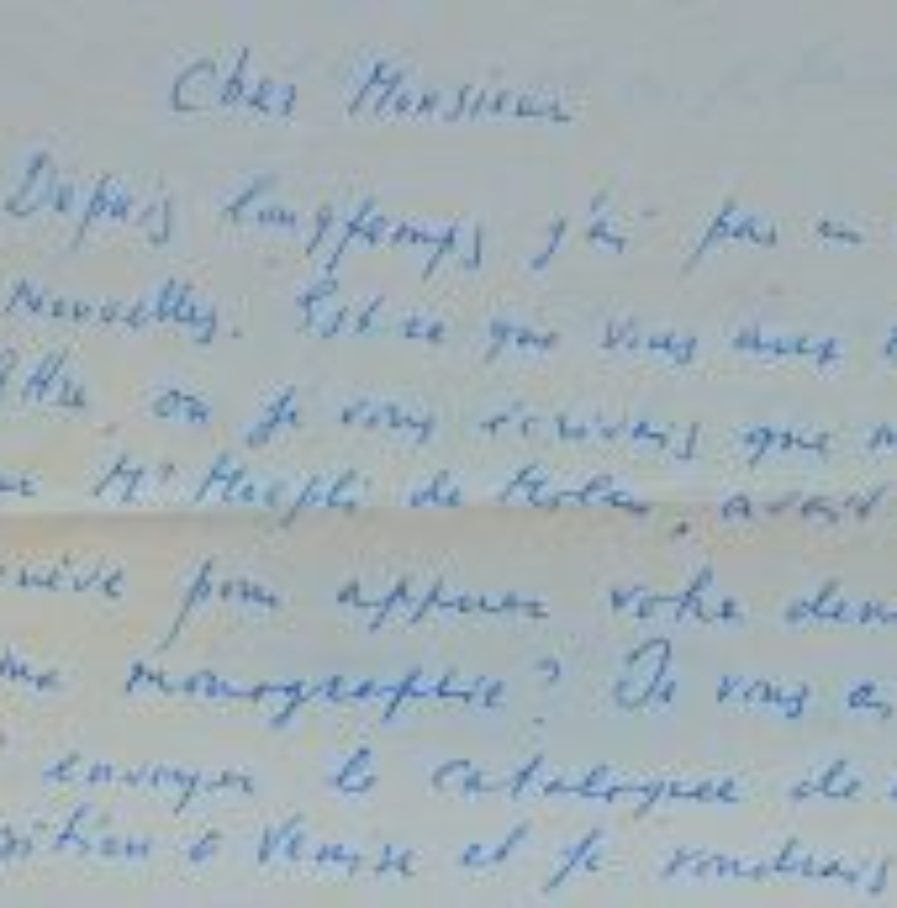 Cher Monsieur
Depuis longtemps j'ai pas eu
nouvelles. Est ce que vous avez
ttre, ou je vous écrivais que
Mr de avait
nève pour appuier votre dem
monographie? Je vous ai
envoyer le catalogue de
sition à Venise et je voudrais